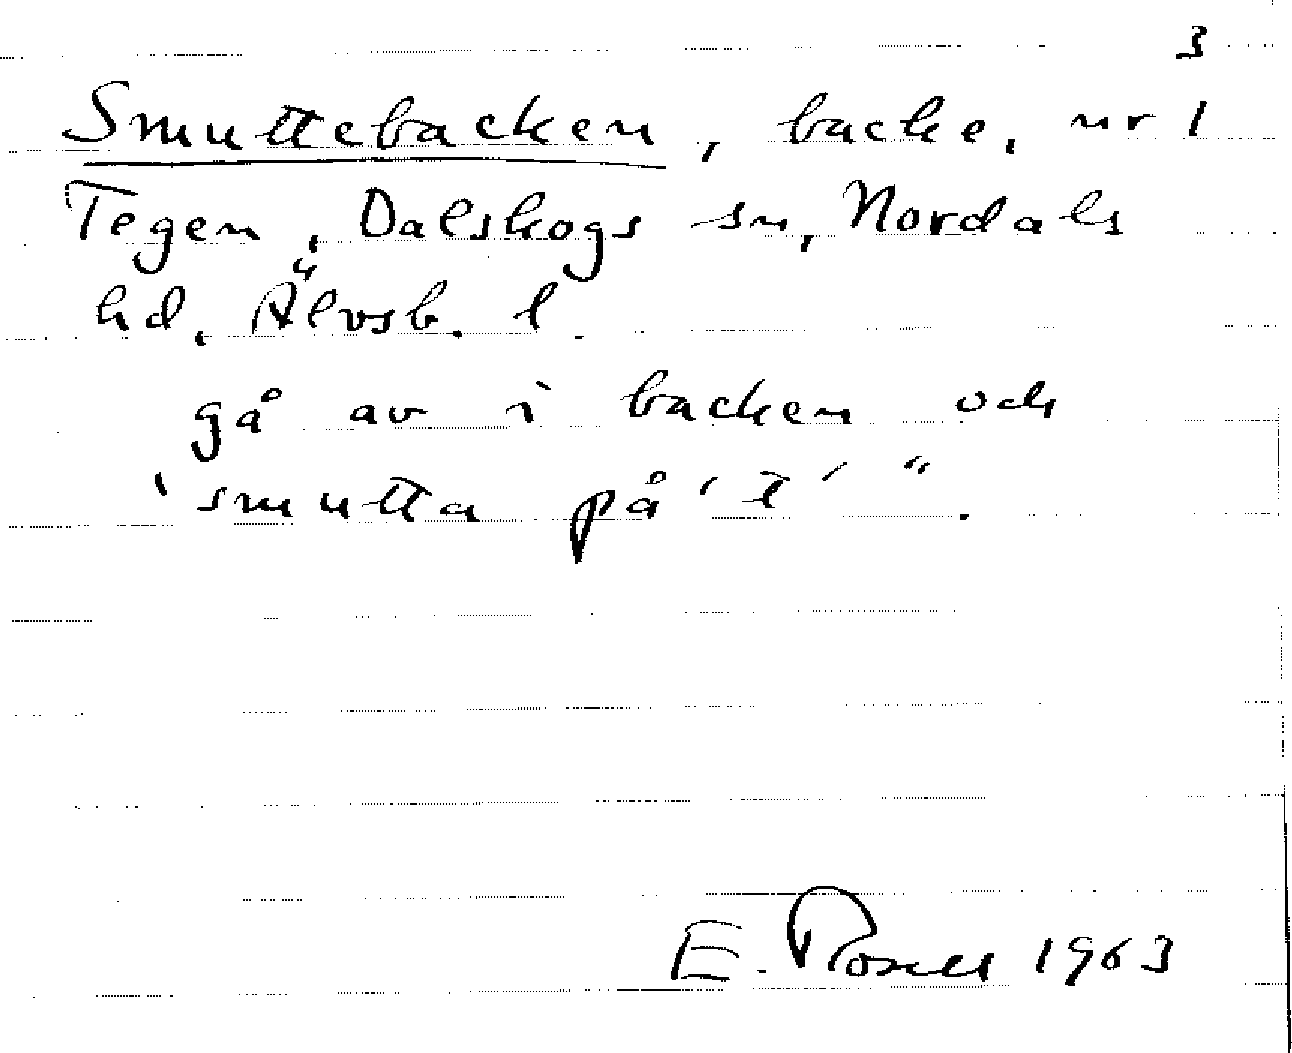 3
Smuttebacken, backe, nr 1
Tegen, Dalskogs sn, Nordals
hd, Älvsb. l
gå av i backen och
'smutta på 't' ".
E. Rosell 1963